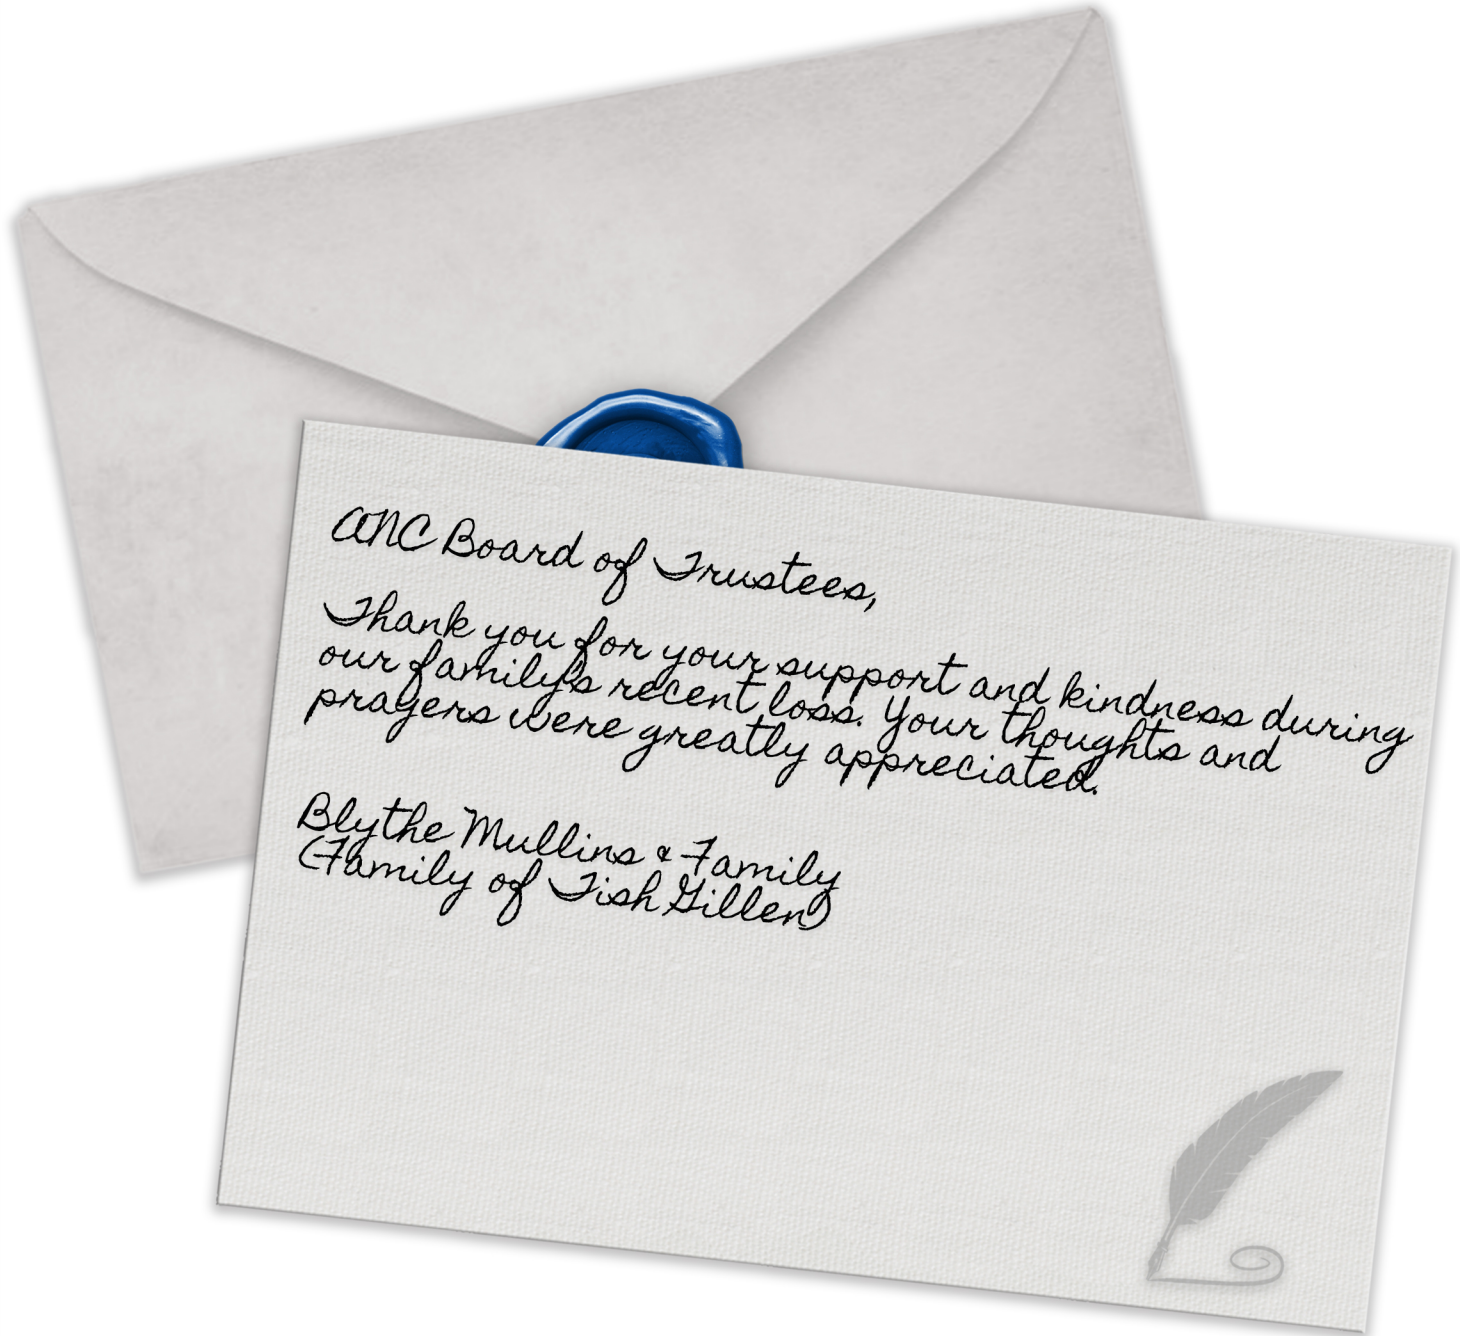 ANC Board of Trustees,
Thank you for your support and kindness during
our family's recent loss. Your thoughts and
prayers were greatly appreciated.
Blythe Mullins & Family
(Family of Tish Gillen)